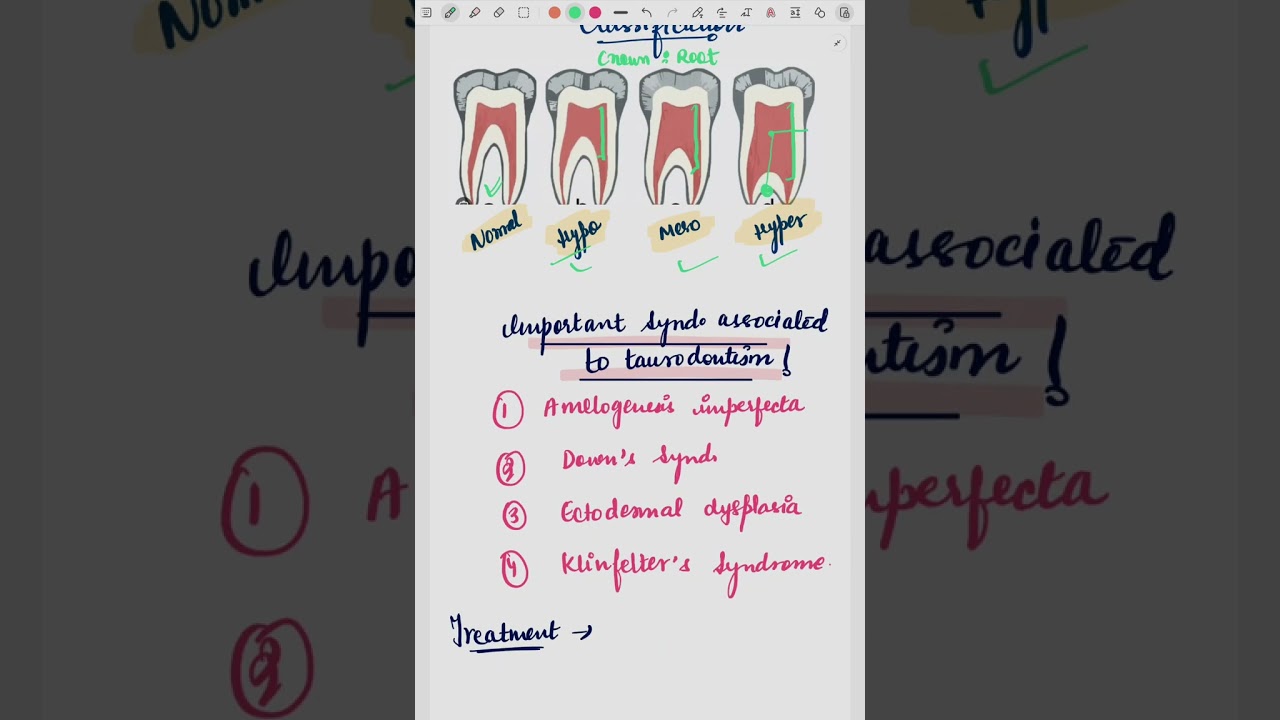 Classification
Crown : Root
Normal
Hypo
Meso
Hyper
Important Synd. associated
to taurodontism !
1 Amelogenesis imperfecta
2 Down's Synd.
3 Ectodermal dysplasia
4 Klinfelter's Syndrome.
Treatment →